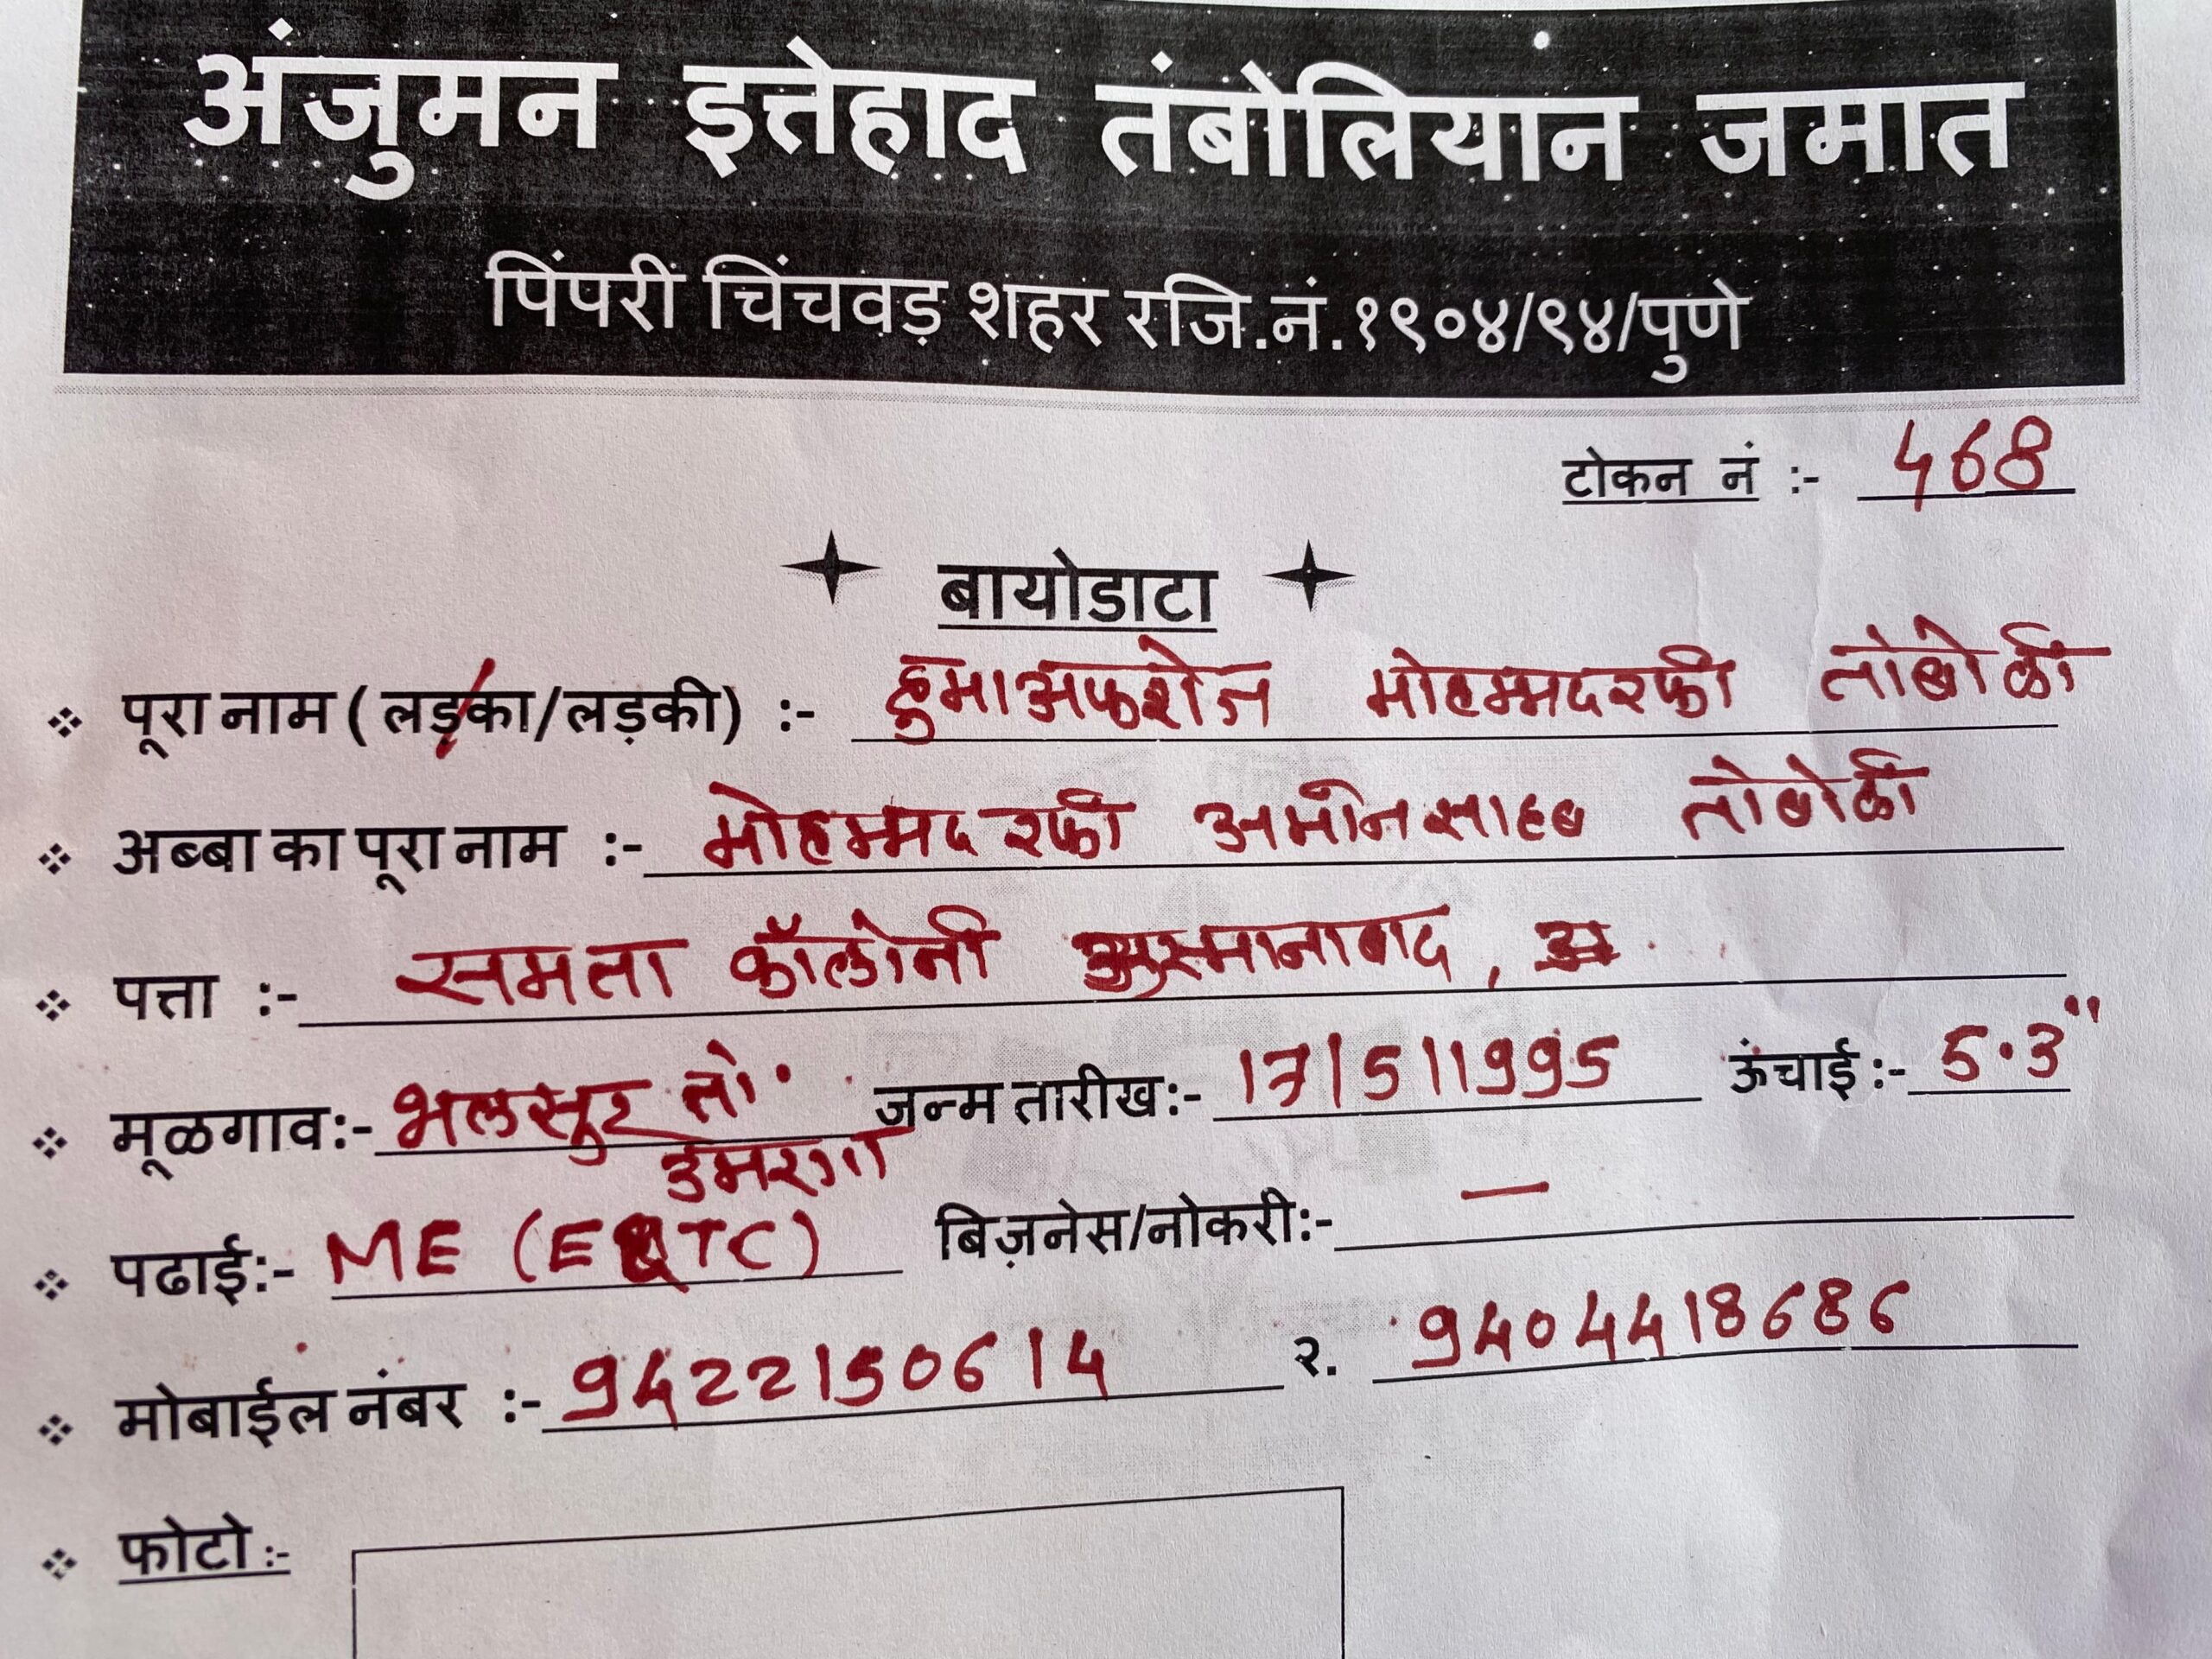 अंजुमन इत्तेहाद तंबोलियान जमात
पिंपरी चिंचवड़ शहर रजि.नं.१९०४/९४/पुणे
टोकन नं :- 468
बायोडाटा
पूरा नाम ( लड़का/लड़की) :- हुमाअफरोज मोहम्मदरफी तांबोळी
अब्बा का पूरा नाम :- मोहम्मद रफी अमीनसाहब तांबोळी
पत्ता :- समता कॉलोनी उस्मानाबाद,
मूळगाव:- भलसुर ता. जन्म तारीख:- 17/5/1995 ऊंचाई :- 5.3"
उमरगा
पढाई:- ME (E&TC) बिज़नेस/नोकरी:- —
मोबाईल नंबर :- 9422150614 २. 9404418686
फोटो :-